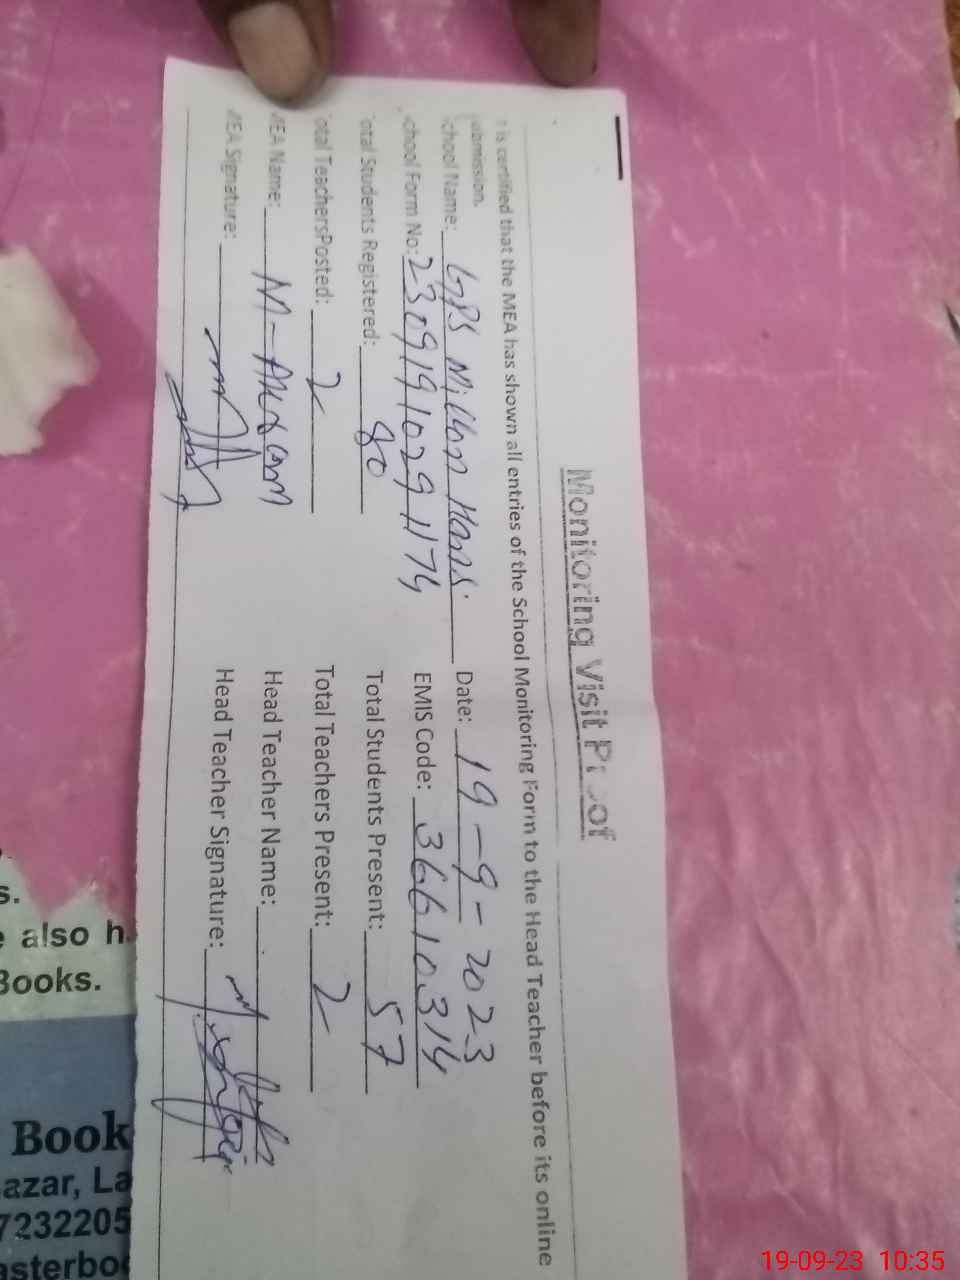 Monitoring Visit Proof
t is certified that the MEA has shown all entries of the School Monitoring Form to the Head Teacher before its online
ubmission.
chool Name: GPS Date: 19-9-2023
chool Form No: 2309191029 1174 EMIS Code: 36610314
otal Students Registered: 80 Total Students Present: 57
otal TeachersPosted: 2 Total Teachers Present: 2
MEA Name: M- Head Teacher Name:
MEA Signature: Head Teacher Signature:
s.
also h
Books.
Book
azar, La
7232205
asterboo
19-09-23 10:35